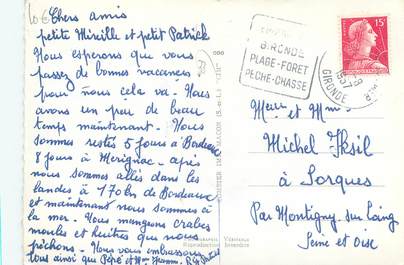 Chers amis
petite Mireille et petit Patrick
Nous esperons que vous
passez de bonnes vacances
pour nous cela va. Nous
avons un peu de beau
temps maintenant. Nous
sommes restés 5 jours à Bordeaux
8 jours à Merignac. après
nous sommes allés dans les
landes à 170 km de Bordeaux
et maintenant nous sommes à
la mer. Nous mangeons crabes
moules et huitres que nous
pêchons. Nous vous embrassons
tous ainsi que Pépé et Mme
GIRONDE
PLAGE-FORET
PECHE-CHASSE
GIRONDE
15F
Meur et Mme
Michel Iksil
à Sorques
Par Montigny-sur-Loing
Seine et Oise